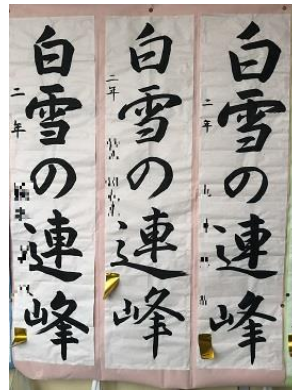 白雪の連峰
二年
白雪の連峰
二年
白雪の連峰
二年